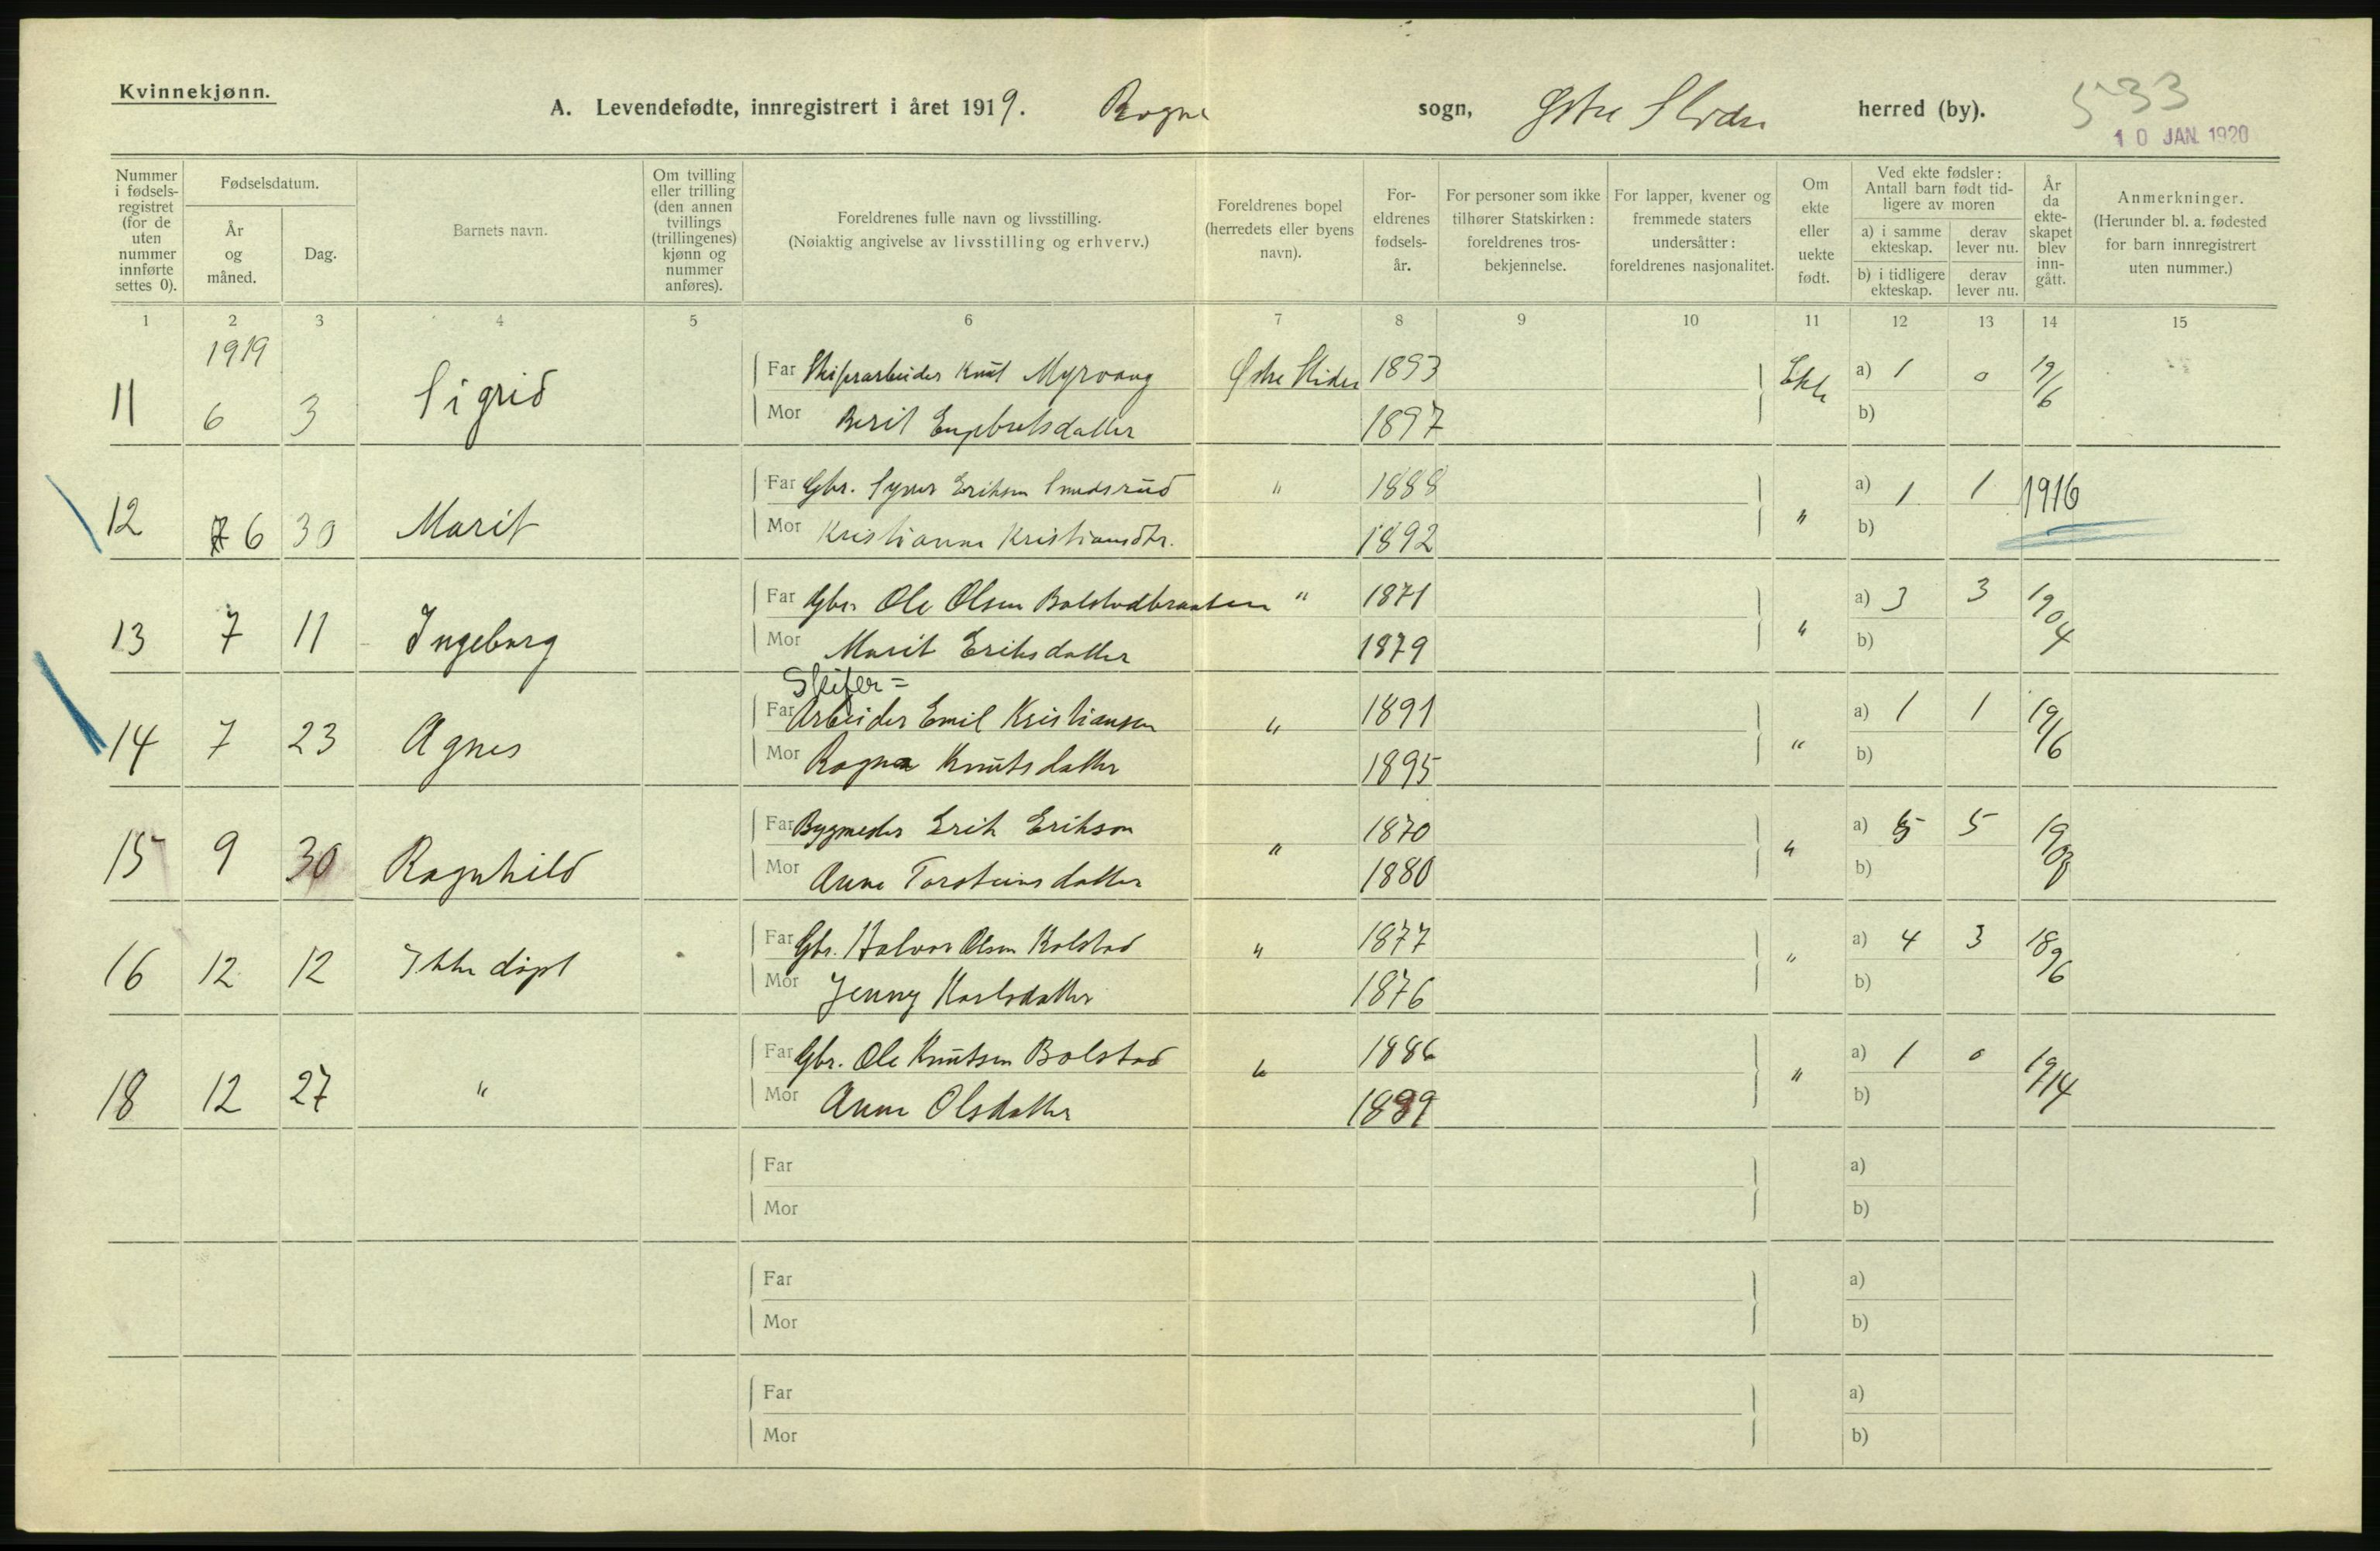 Kvinnekjønn.
A. Levendefødte, innregistrert i året 1919. Rogne sogn, Østre Slidre herred (by). 533
10 JAN. 1920
Nummer i fødselsregistret (for de uten nummer innførte settes 0).
Fødselsdatum.
År og måned.
Dag.
Barnets navn.
Om tvilling eller trilling (den annen tvillings (trillingenes) kjønn og nummer anføres).
Foreldrenes fulle navn og livsstilling.
(Nøiaktig angivelse av livsstilling og erhverv.)
Foreldrenes bopel (herredets eller byens navn).
Foreldrenes fødselsår.
For personer som ikke tilhører Statskirken: foreldrenes trosbekjennelse.
For lapper, kvener og fremmede staters undersåtter: foreldrenes nasjonalitet.
Om ekte eller uekte født.
Ved ekte fødsler: Antall barn født tidligere av moren
a) i samme ekteskap.
derav lever nu.
b) i tidligere ekteskap.
derav lever nu.
År da ekteskapet blev inngått.
Anmerkninger.
(Herunder bl. a. fødested for barn innregistrert uten nummer.)
1 2 3 4 5 6 7 8 9 10 11 12 13 14 15
1919
11 6 3 Sigrid Far Skiferarbeider Knut Myrvang Østre Slidre 1893 Ekte a) 1 0 1916
Mor Berit Engebretsdatter 1897 b)
12 6 30 Marit Far Gbr. Syver Eriksen Smedsrud " 1888 " a) 1 1 1916
Mor Kristianna Kristiansdtr. 1892 b)
13 7 11 Ingeborg Far Gbr. Ole Olsen Bolstadbraaten " 1871 " a) 3 3 1904
Mor Marit Eriksdatter 1879 b)
Skifer=
14 7 23 Agnes Far Arbeider Emil Kristiansen " 1891 " a) 1 1 1916
Mor Ragna Knutsdatter 1895 b)
15 9 30 Ragnhild Far Bygmester Erik Erikson " 1870 " a) 5 5 1908
Mor Anne Torsteinsdatter 1880 b)
16 12 12 Ikke døpt Far Gbr. Halvor Olsen Kolstad " 1877 " a) 4 3 1896
Mor Jenny Karlsdatter 1876 b)
18 12 27 " Far Gbr. Ole Knutsen Bolstad " 1886 " a) 1 0 1914
Mor Anne Olsdatter 1889 b)
Far a)
Mor b)
Far a)
Mor b)
Far a)
Mor b)